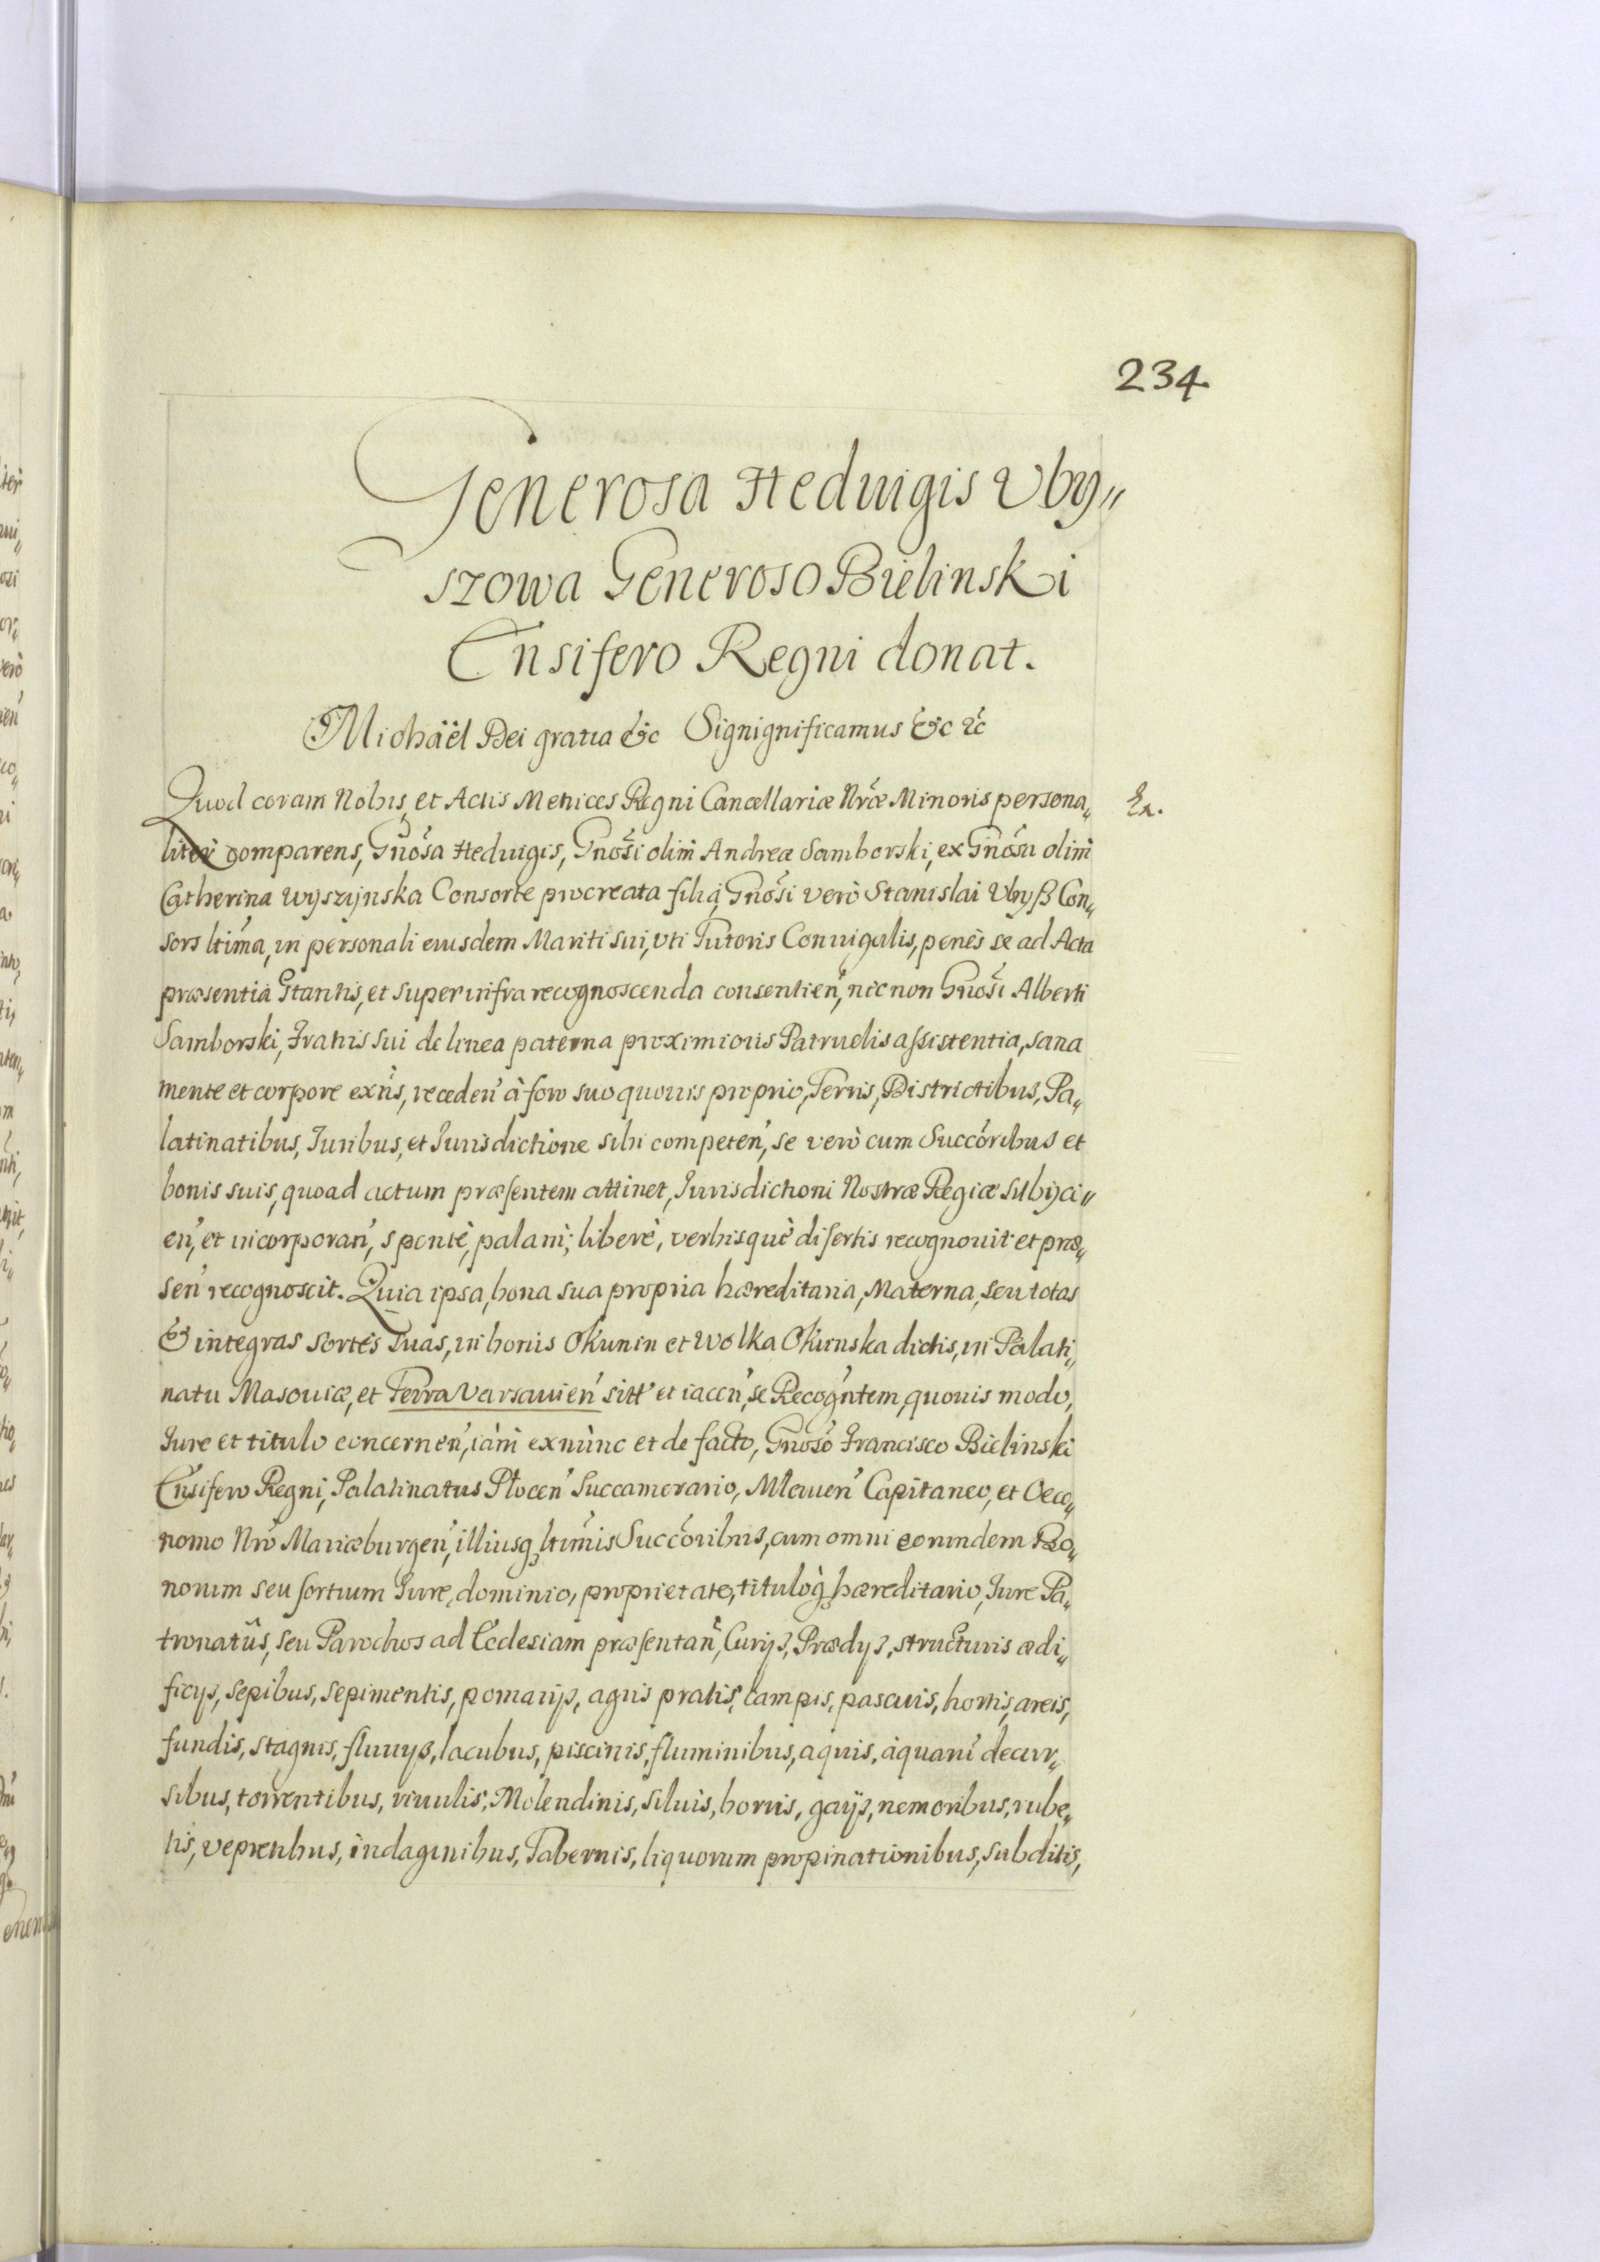 234
Generosa Heduigis Vby„
szowa Generoso Bielinski
Ensifero Regni donat.
Michaël Dei gratia &c Signignificamus &c &c
Quod coram Nobis, et Actis Metrices Regni Cancellariæ Nr̃æ Minoris persona„
Ex.
litèr comparens, Gñosa Heduigis, Gñosi olim Andreæ Samborski, ex Gñosa olim
Catherina Wyszijnska Consorte procreata filia, Gñosi verò Stanislai Vbyß Con„
sors ltima, in personali eiusdem Mariti sui, vti Tutoris Coniugalis, penès se ad Acta
præsentia Stantis, et super infra recognoscenda consentień, nic non Gñosi Alberti
Samborski, Fratris sui de linea paterna proximioris Patruelis assistentia, sana
mente et corpore exñs, receden̄ à foro suo quouis proprio, Terris, Districtibus, Pa„
latinatibus, Juribus, et Jurisdictione sibi competeń, se verò cum Succoribus et
bonis suis, quoad actum præsentem attinet, Jurisdictioni Nostræ Regiæ subijci„
eń, et incorporań, spontè, palam, liberè, verbisquè disertis recognouit et præ„
seń recognoscit. Quia ipsa, bona sua propria hæreditaria, Materna, seu totas
& integras sortes suas, in bonis Okunin et Wolka Okunska dictis, in Palati„
natu Masouiæ, et Terra Varsauień sitt' et iaceń, se Recogñtem, quouis modo,
Jure et titulo concerneń, iàm exnùnc et de facto, Gñoso Francisco Bielinski
Ensifero Regni, Palatinatus Ploceń Succamerario, Mlauień Capitaneo, et Oeco„
nomo Nrõ Mariæburgeń, illiusq; ltimis Succoribus, cum omni eorundem Bo„
norum seu sortium Jure, dominio, proprietate, tituloq; hæreditario, Jure Pa„
tronatûs, seu Parochos ad Ecclesiam præsentań, Curijs, Prædys, structuris ædi„
ficijs, sepibus, sepimentis, pomarijs, agris pratis, campis, pascuis, hortis, areis,
fundis, stagnis, fluuijs, lacubus, piscinis, fluminibus, aquis, aquarum decur„
sibus, torrentibus, riuulis, Molendinis, siluis, borris, gaijs, nemoribus, rube„
tis, vepretibus, indaginibus, Tabernis, liquorum propinationibus, subditis,